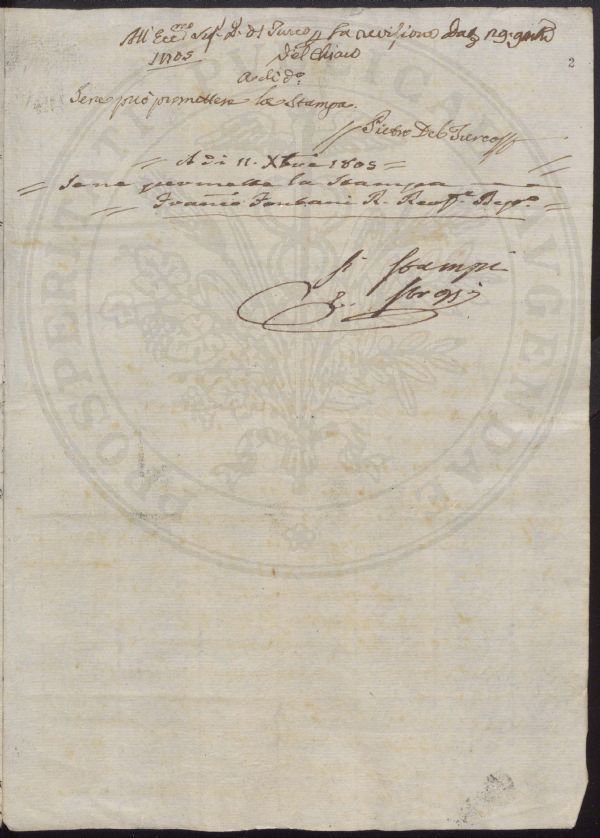 All'Ecc.mo Sig.r D. Del Turco p. la revisione
1805
Del Chiaro
A di d.o
Se ne può permettere la Stampa.
Pietro Del Turco
A di 11. Xbre 1805
Se ne permette la Stampa
Franco Fontani R.
Si Stampi
PROSPERITATI PVBLICAE AVGENDAE
2